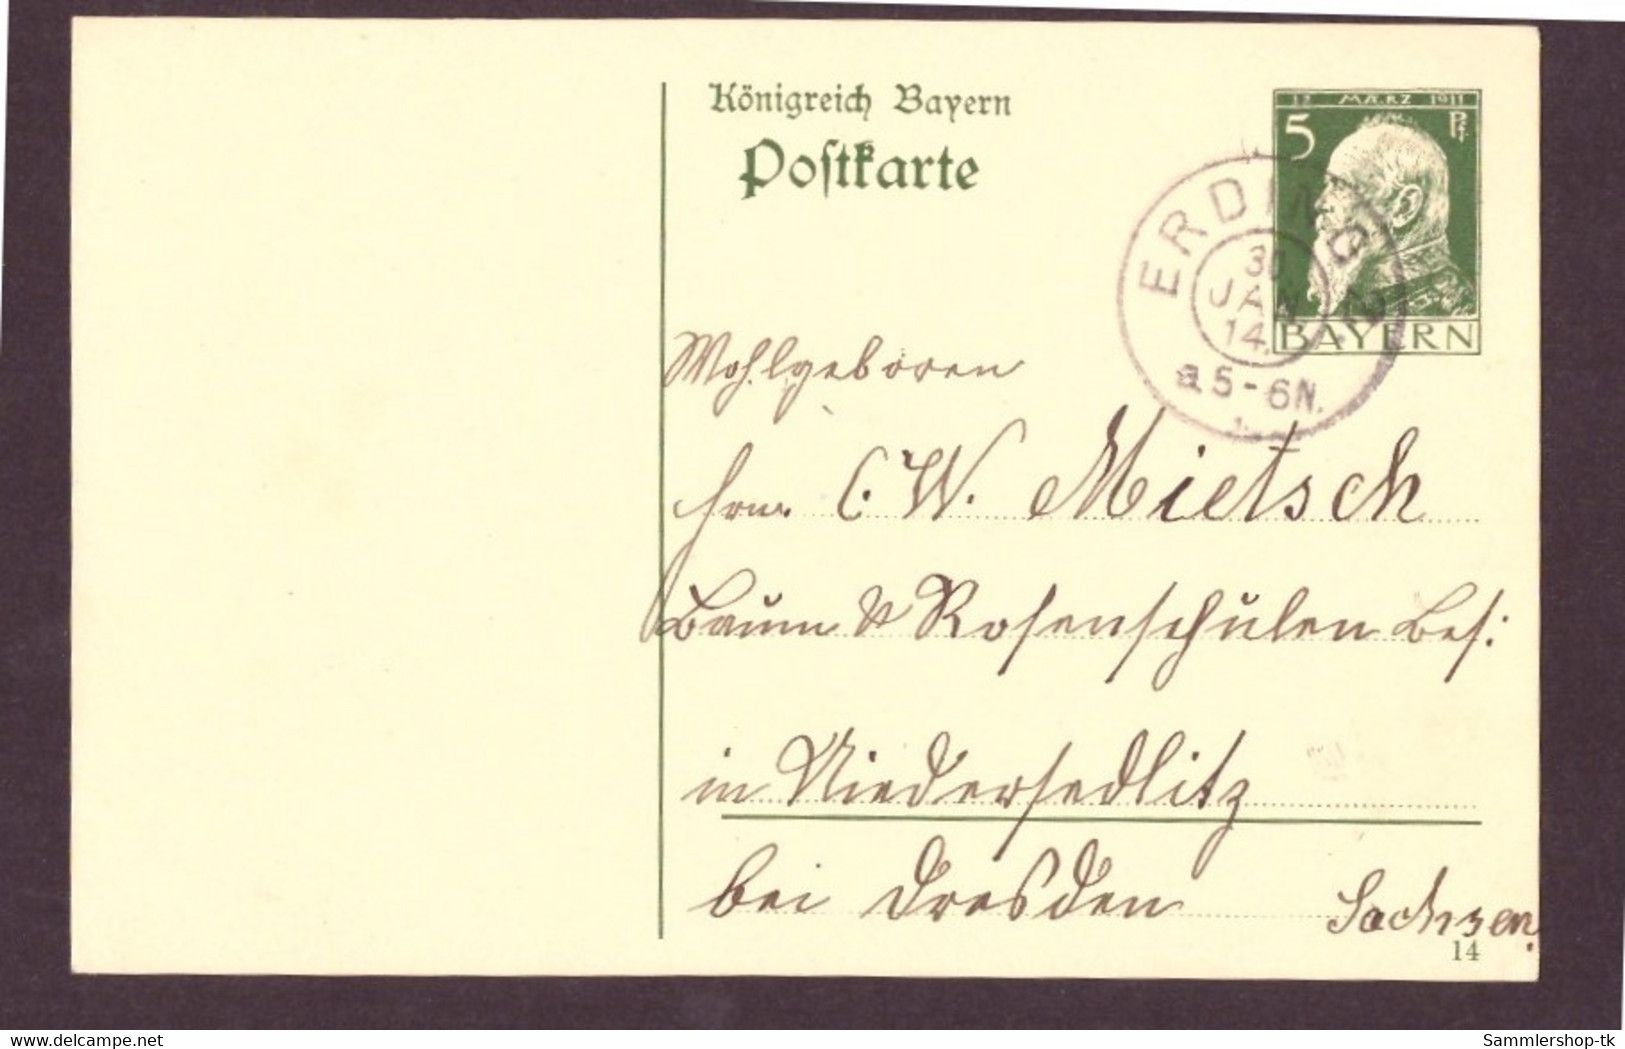 Königreich Bayern
Postkarte
12 MÄRZ 1911
5 Pf.
BAYERN
ERDING 2
30
JAN
14.
a 5-6N.
Wohlgeboren
Hrn. C. W. Mietsch
Baum & Rosenschulen Bes:
in Niedersedlitz
bei Dresden Sachsen.
14
delcampe.net
Sammlershop-tk